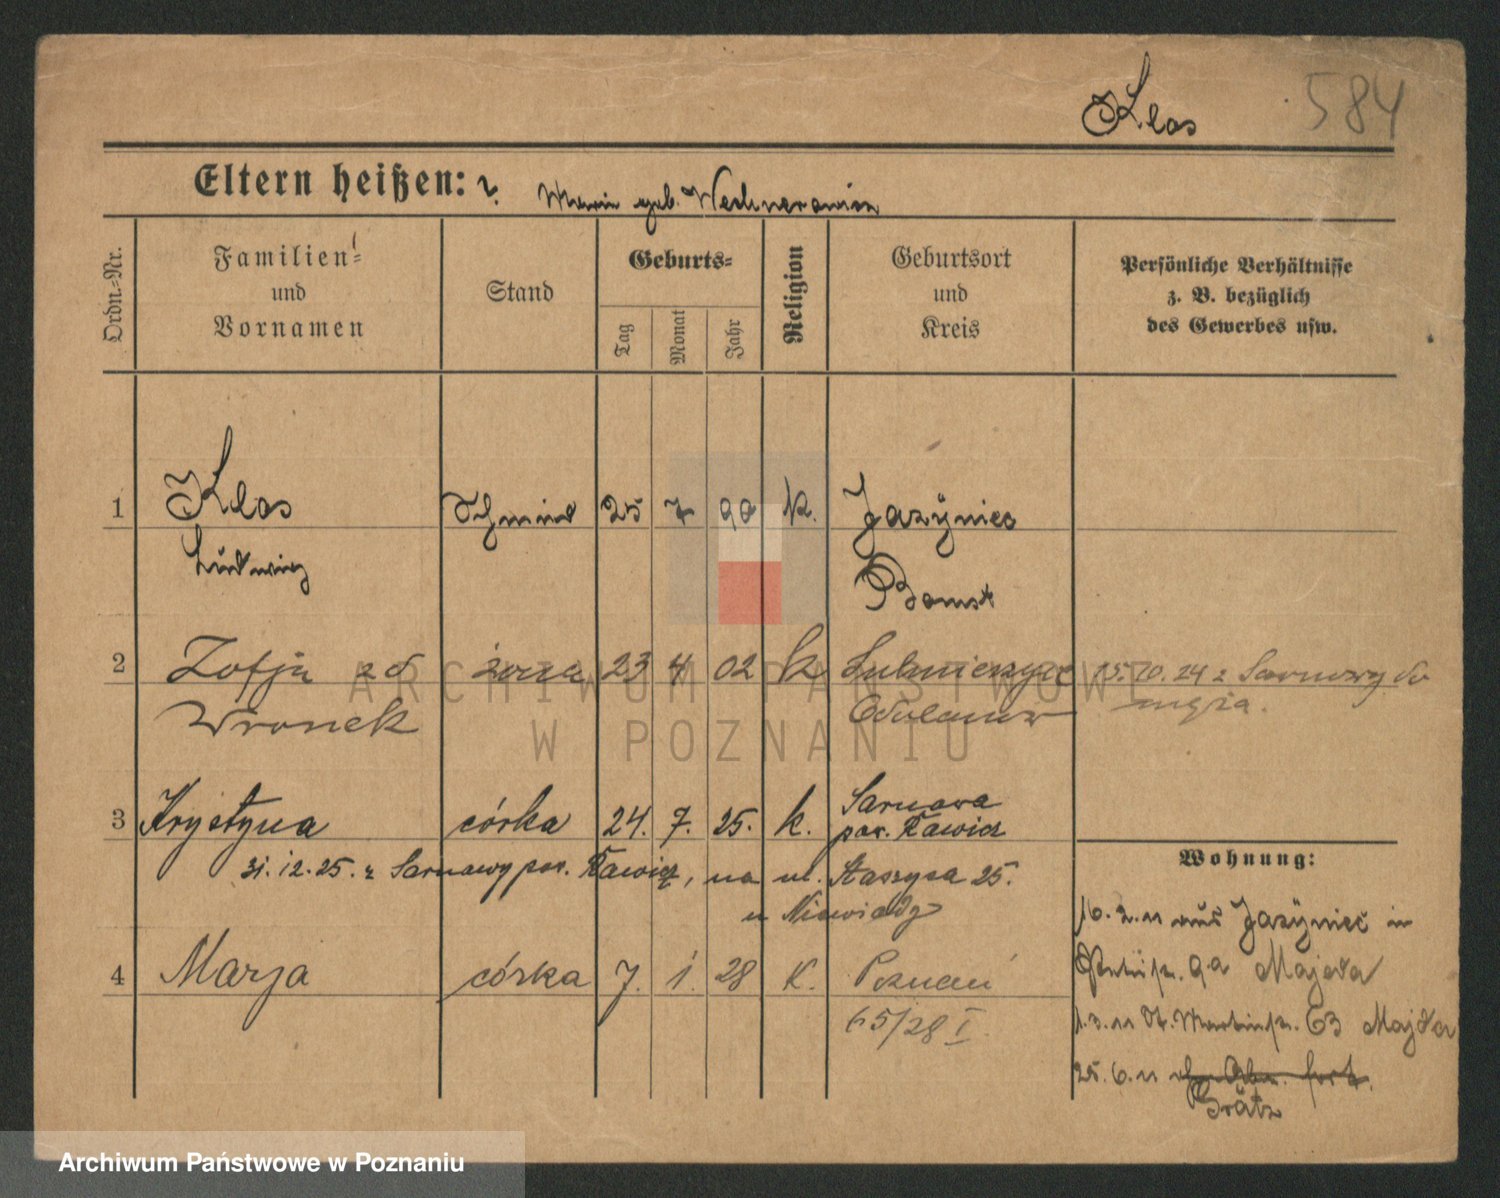 Klos 584
Eltern heißen: ?. Maria geb.
Ordn.-Nr.
Familien-
und
Vornamen
Stand
Geburts-
Tag
Monat
Jahr
Religion
Geburtsort
und
Kreis
Persönliche Verhältnisse
z. B. bezüglich
des Gewerbes usw.
1 Klos Schmied 25 7 90 k. Jazyniec
Ludwig Bomst
2 Zofja zd żona 23 4 02 k 15.10.24 z Sarnowy do
Wronek Odolanów męża.
3 Krystyna córka 24. 7. 25. k. Sarnowa
pow. Rawicz
31.12.25. z Sarnowy pow. Rawicz, na ul. Staszyca 25.
u
4 Marja córka 7. 1. 28 K. Poznań
65/28 I
Wohnung:
16.2.11 aus Jazyniec in
9a Majda
1.3.11 St. Martinstr. 63 Majda
25.6.11 fort.
Grätz
ARCHIWUM PAŃSTWOWE
W POZNANIU
Archiwum Państwowe w Poznaniu